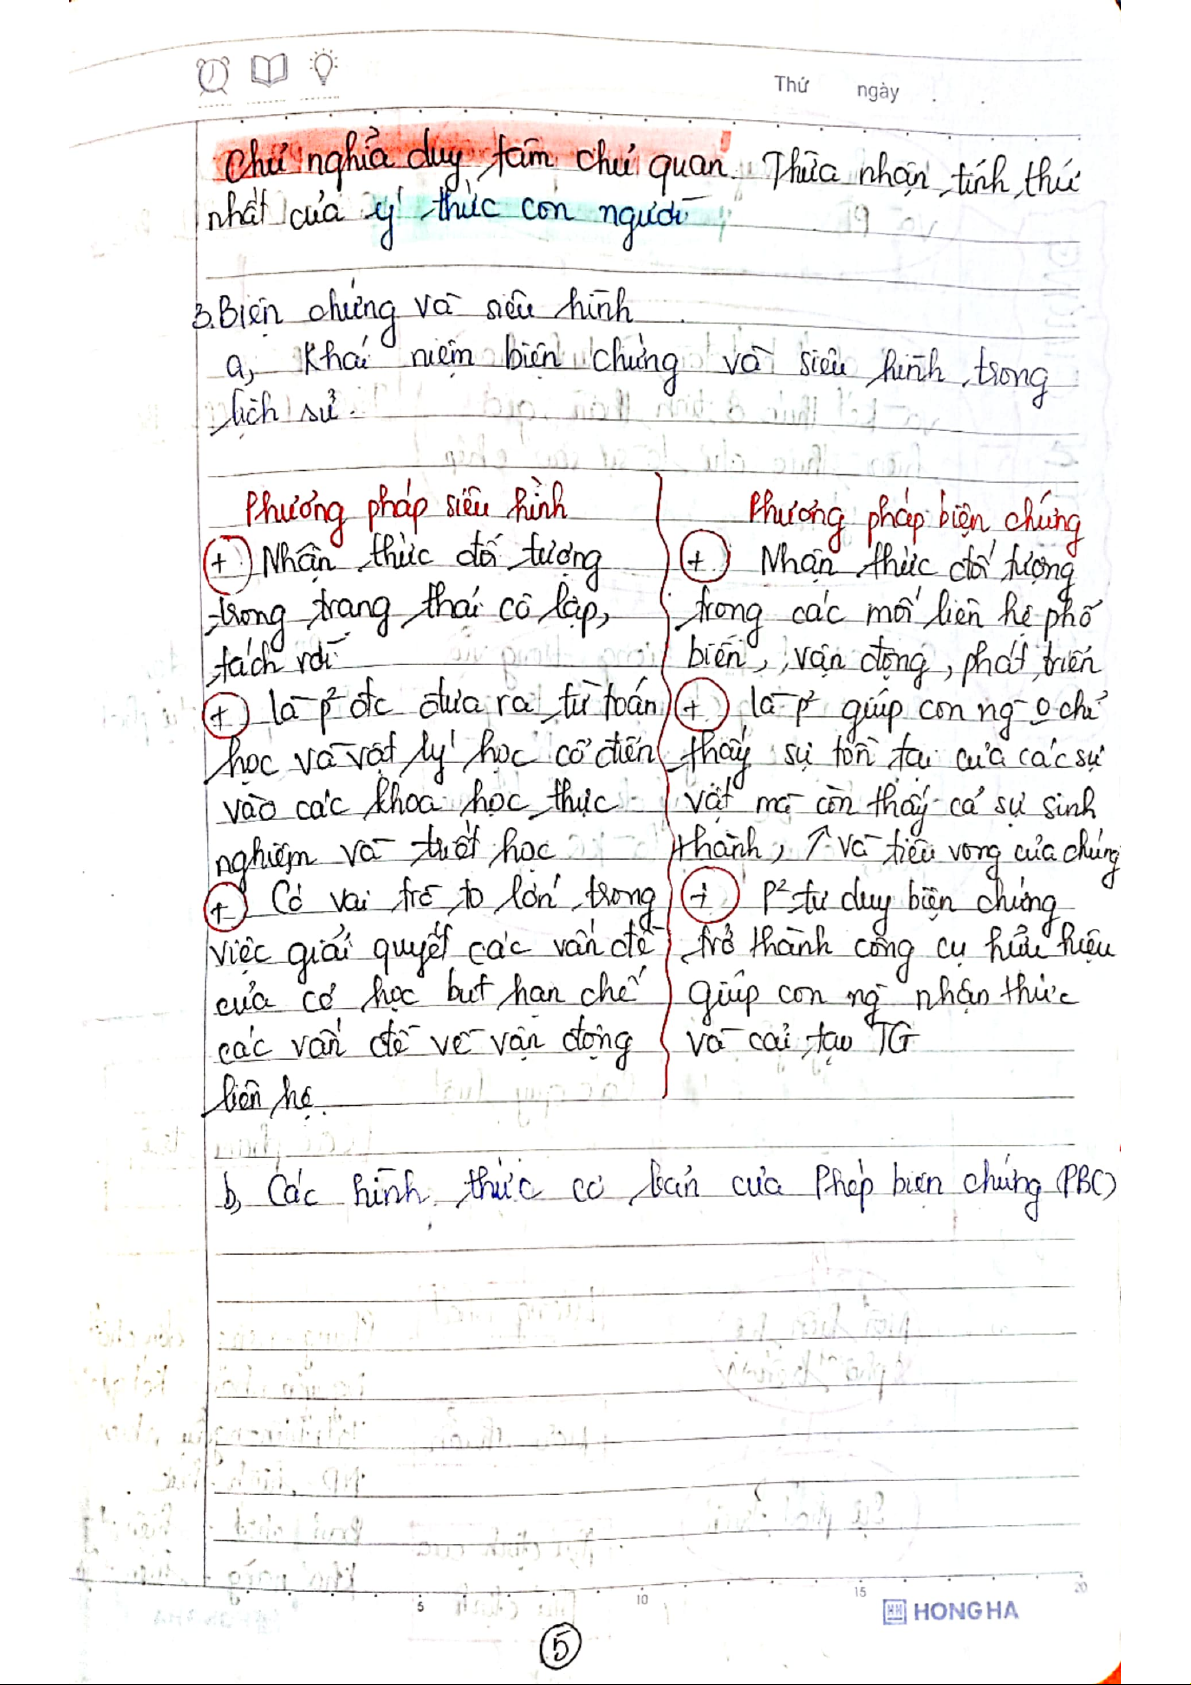 Thứ ngày
Chủ nghĩa duy tâm chủ quan. Thừa nhận tính thứ
nhất của ý thức con người
3. Biện chứng và siêu hình
a, Khái niệm biện chứng và siêu hình trong
lịch sử.
Phương pháp siêu hình
+ Nhận thức đối tượng
trong trạng thái cô lập,
tách rời
+ là p² đc đưa ra từ toán
học và vật lý học cổ điển
vào các khoa học thực
nghiệm và triết học
+ Có vai trò to lớn trong
việc giải quyết các vấn đề
của cơ học but hạn chế
các vấn đề về vận động
liên hệ.
Phương pháp biện chứng
+ Nhận thức đối tượng
trong các mối liên hệ phổ
biến, vận động, phát triển
+ là p² giúp con ng o chỉ
thấy sự tồn tại của các sự
vật mà còn thấy cả sự sinh
thành, ↑ và tiêu vong của chúng
+ P² tư duy biện chứng
trở thành công cụ hữu hiệu
giúp con ng nhận thức
và cải tạo TG
b, Các hình thức cơ bản của Phép biện chứng (PBC)
5 10 15 20
HONG HA
5